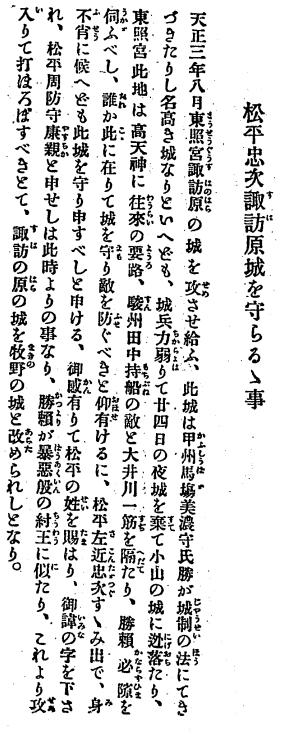 松平忠次諏訪原城を守らるゝ事
天正三年八月東照宮諏訪原の城を攻させ給ふ、此城は甲州馬塲美濃守氏勝が城制の法にてき
づきたりし名高き城なりといへども、城兵力弱りて廿四日の夜城を棄て小山の城に迯落たり、
東照宮此地は高天神に往來の要路、駿州田中持船の敵と大井川一筋を隔たり、勝賴必隙を
伺ふべし、誰か此に在りて城を守り敵を防ぐべきと仰有けるに、松平左近忠次すゝみ出で、身
不肖に候へども此城を守り申すべしと申ける、御感有りて松平の姓を賜はり、御諱の字を下さ
れ、松平周防守康親と申せしは此時よりの事なり、勝賴が暴惡殷の紂王に似たり、これより攻
入りて打ほろぼすべきとて、諏訪の原の城を牧野の城と改められしとなり。